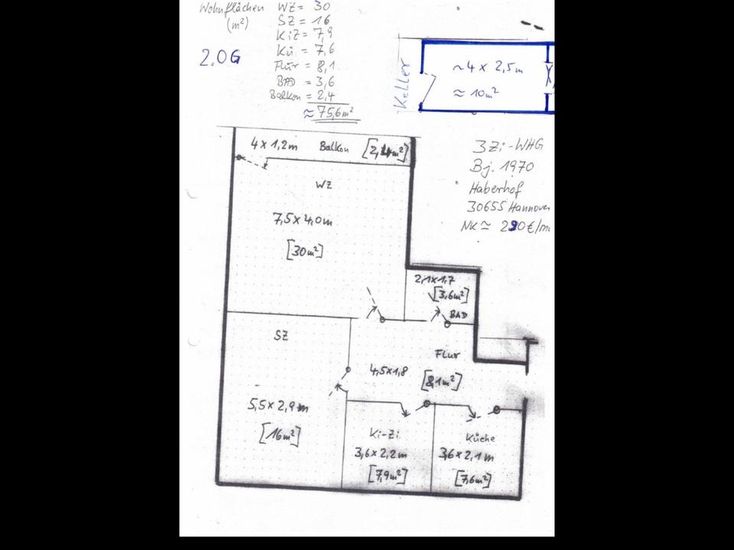 Wohnflächen
(m²)
WZ = 30
SZ = 16
KiZ = 7,9
Kü = 7,6
Flur = 8,1
BAD = 3,6
Balkon = 2,4
≈ 75,6m²
2.OG
Keller
~4 x 2,5m
≈ 10m²
3Zi-WHG
Bj. 1970
Haberhof
30655 Hannover
NK ≈ 290€/m
4 x 1,2m Balkon [2,4m²]
WZ
7,5 x 4,0m
[30m²]
2,1x1,7
[3,6m²]
BAD
SZ
5,5 x 2,9m
[16m²]
Flur
4,5x1,8
[8,1m²]
Ki-Zi
3,6x2,2m
[7,9m²]
Küche
3,6x2,1m
[7,6m²]